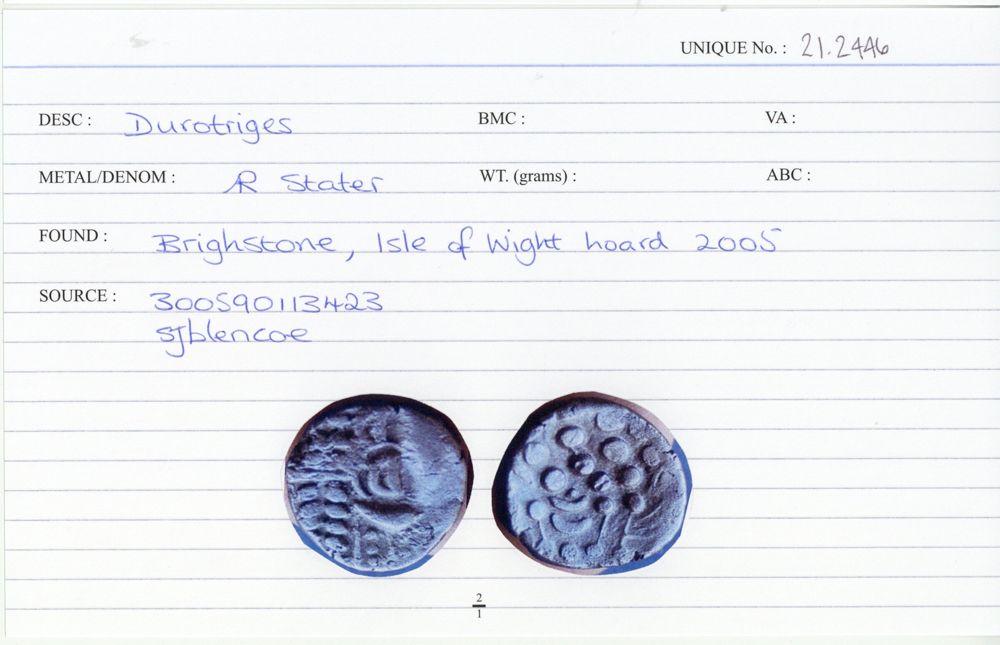 UNIQUE No. : 21.2446
DESC : Durotriges BMC : VA :
METAL/DENOM : AR Stater WT. (grams) : ABC :
FOUND : Brighstone, Isle of Wight hoard 2005
SOURCE : 300590113423
sjblencoe
2
1